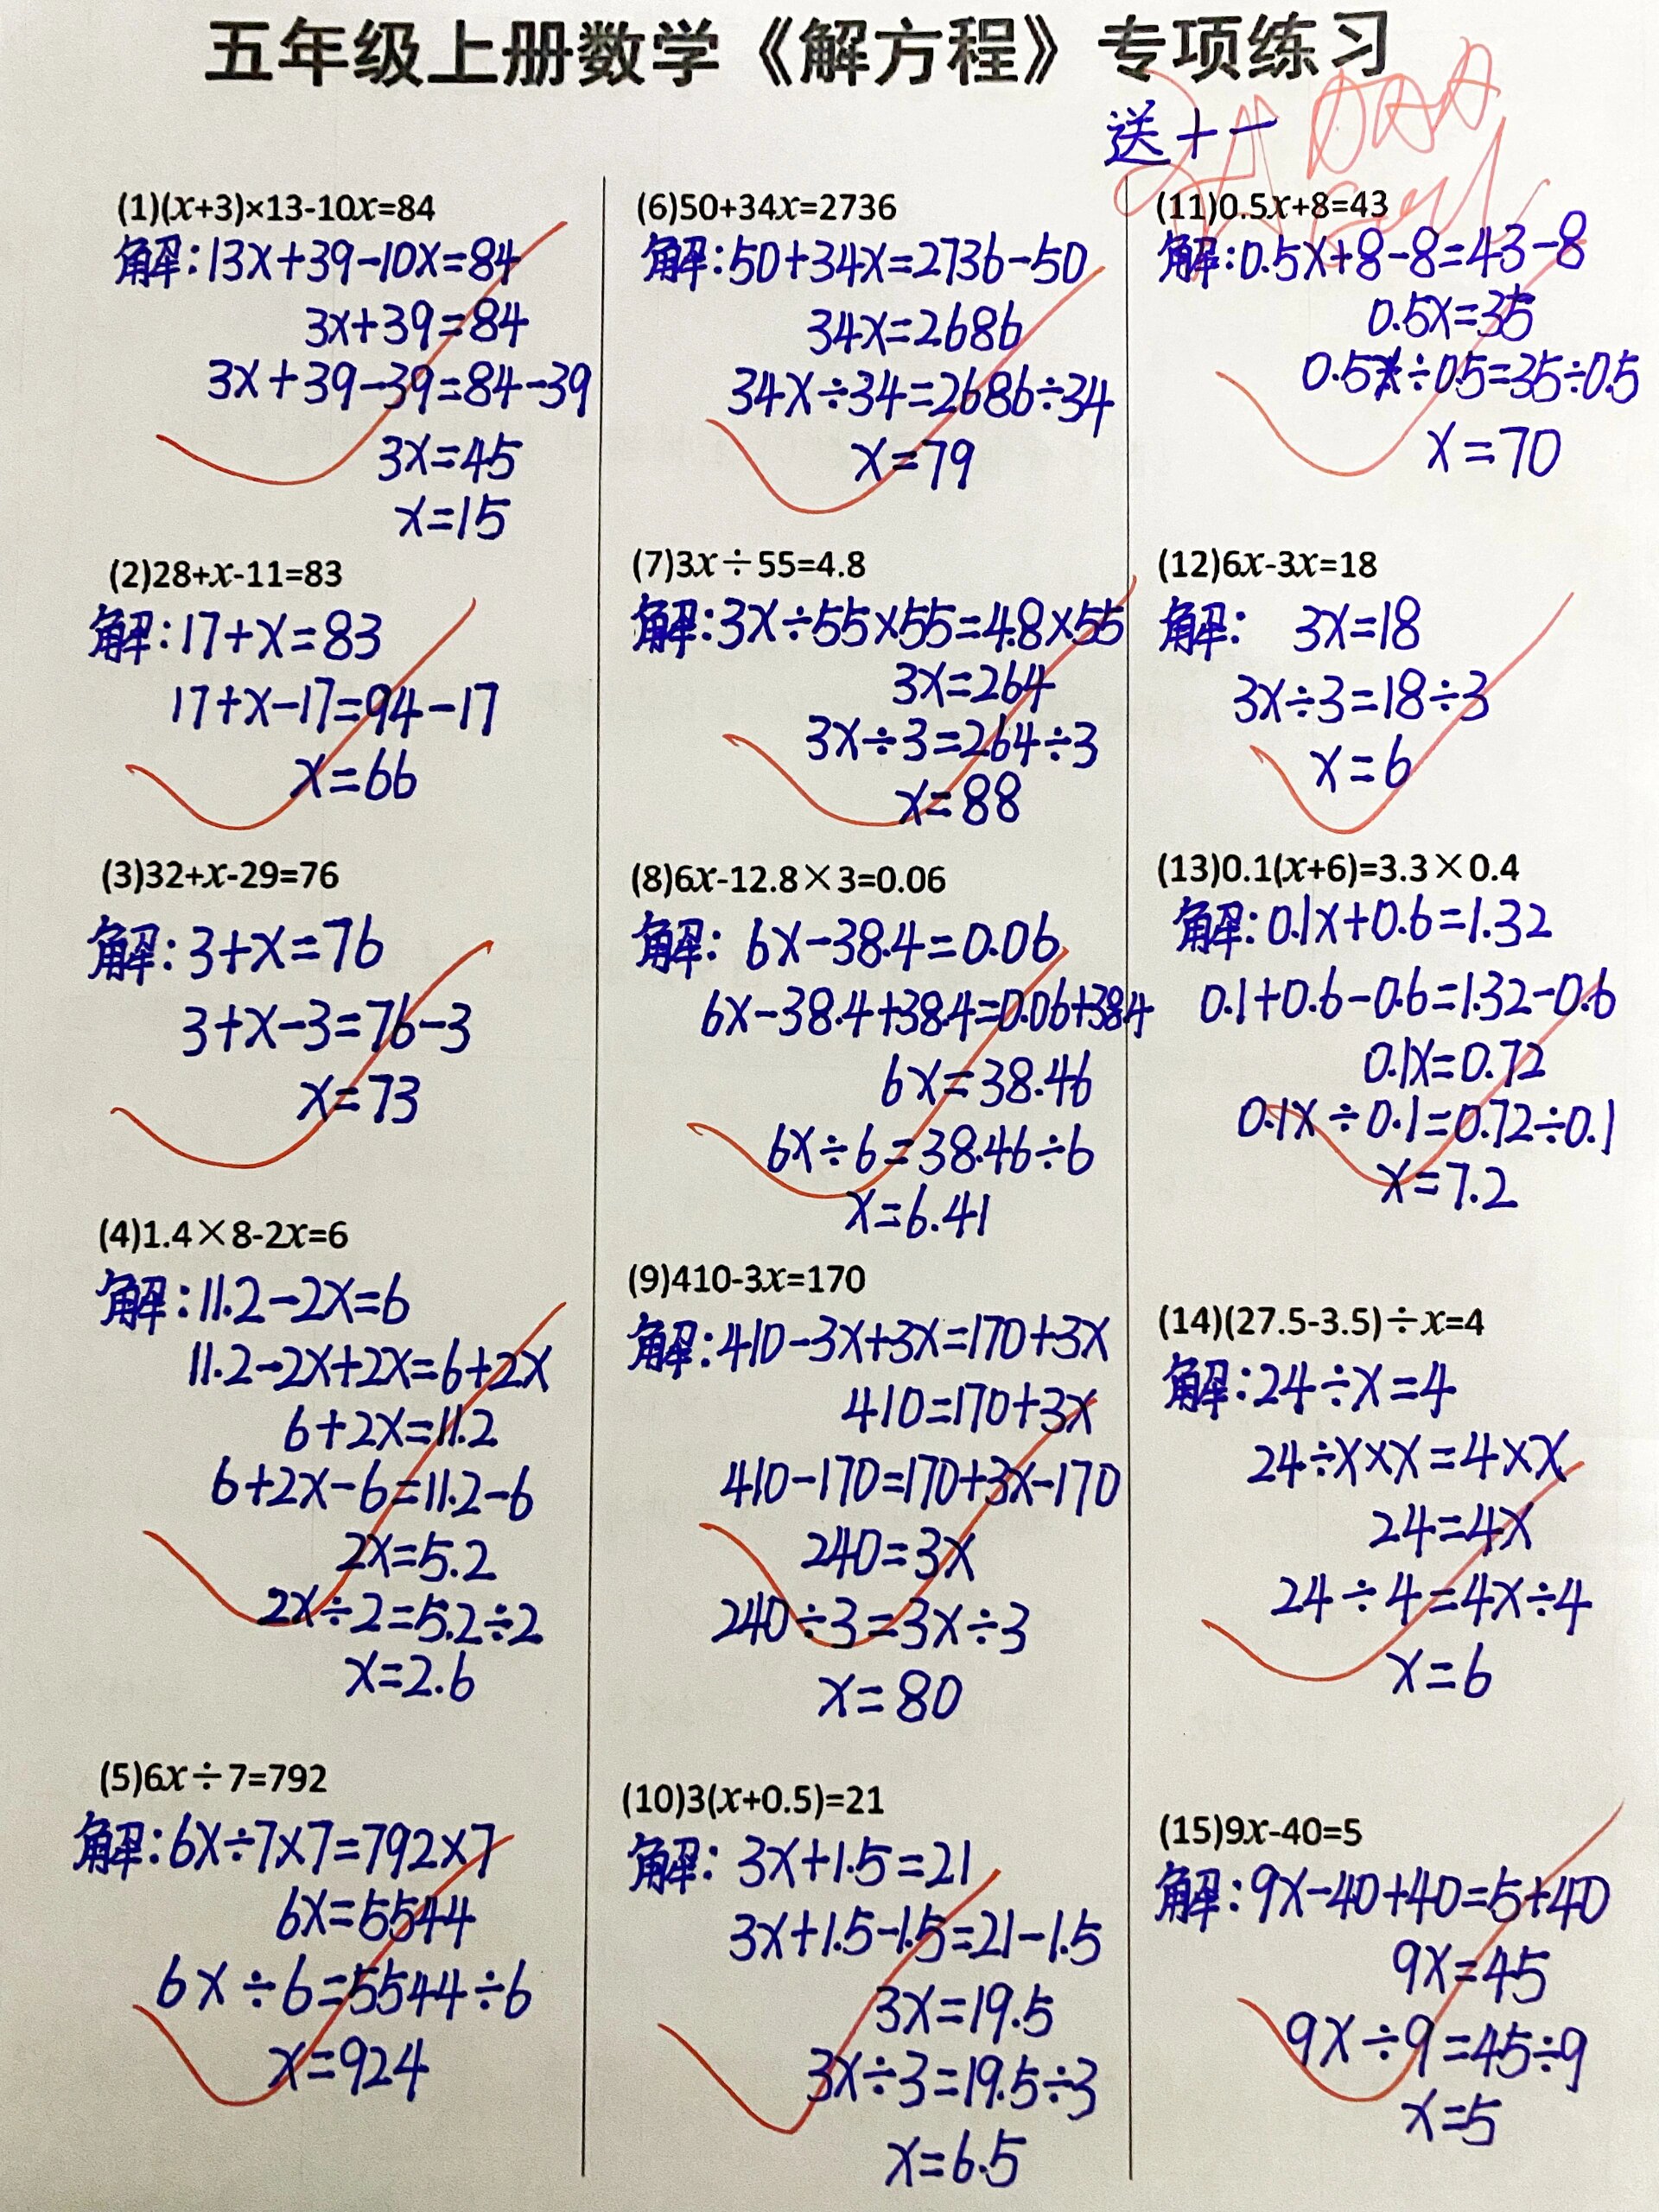 五年级上册数学《解方程》专项练习
送十一
(1)(x+3)×13-10x=84
解:13x+39-10x=84
3x+39=84
3x+39-39=84-39
3x=45
x=15
(2)28+x-11=83
解:17+x=83
17+x-17=94-17
x=66
(3)32+x-29=76
解:3+x=76
3+x-3=76-3
x=73
(4)1.4×8-2x=6
解:11.2-2x=6
11.2-2x+2x=6+2x
6+2x=11.2
6+2x-6=11.2-6
2x=5.2
2x÷2=5.2÷2
x=2.6
(5)6x÷7=792
解:6x÷7×7=792×7
6x=5544
6x÷6=5544÷6
x=924
(6)50+34x=2736
解:50+34x=2736-50
34x=2686
34x÷34=2686÷34
x=79
(7)3x÷55=4.8
解:3x÷55×55=4.8×55
3x=264
3x÷3=264÷3
x=88
(8)6x-12.8×3=0.06
解: 6x-38.4=0.06
6x-38.4+38.4=0.06+38.4
6x=38.46
6x÷6=38.46÷6
x=6.41
(9)410-3x=170
解:410-3x+3x=170+3x
410=170+3x
410-170=170+3x-170
240=3x
240÷3=3x÷3
x=80
(10)3(x+0.5)=21
解: 3x+1.5=21
3x+1.5-1.5=21-1.5
3x=19.5
3x÷3=19.5÷3
x=6.5
(11)0.5x+8=43
解:0.5x+8-8=43-8
0.5x=35
0.5x÷0.5=35÷0.5
x=70
(12)6x-3x=18
解: 3x=18
3x÷3=18÷3
x=6
(13)0.1(x+6)=3.3×0.4
解:0.1x+0.6=1.32
0.1+0.6-0.6=1.32-0.6
0.1x=0.72
0.1x÷0.1=0.72÷0.1
x=7.2
(14)(27.5-3.5)÷x=4
解:24÷x=4
24÷x×x=4×x
24=4x
24÷4=4x÷4
x=6
(15)9x-40=5
解:9x-40+40=5+40
9x=45
9x÷9=45÷9
x=5